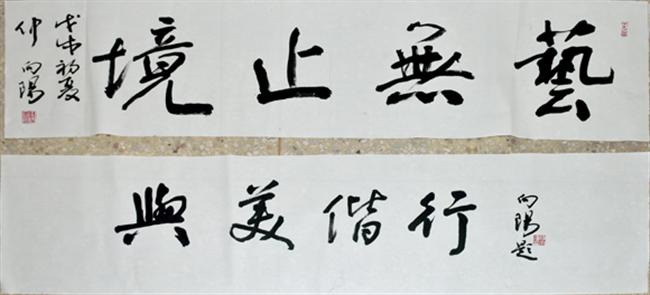 藝無止境
戊戌初夏
仲向陽
與美偕行
向陽題